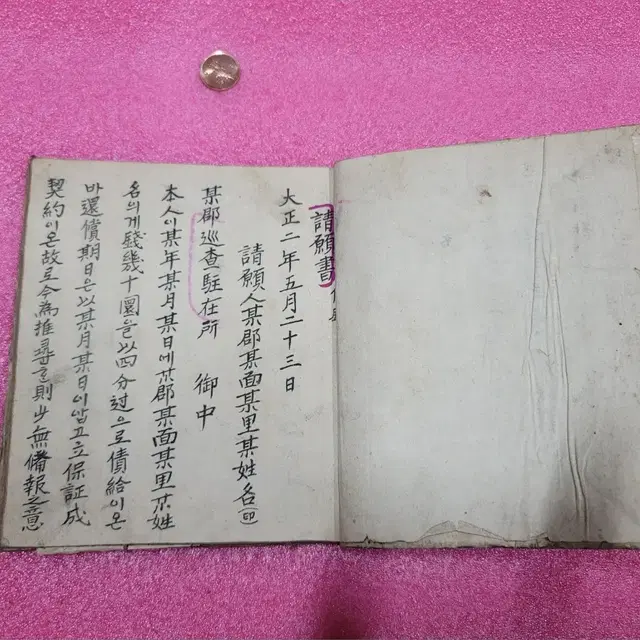 請願書
大正二年五月二十三日
請願人某郡某面某里某姓名㊞
某郡巡查駐在所 御中
本人이某年某月某日에某郡某面某里某姓
名의게錢幾十圜을以四分邊으로債給이온
바還償期日은以某月某日이압고立保証成
契約이온故로今為推尋 則少無備報之意